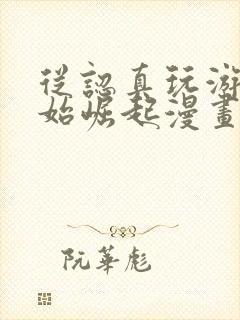 從認真玩游
始崛起漫畫
阮華彪